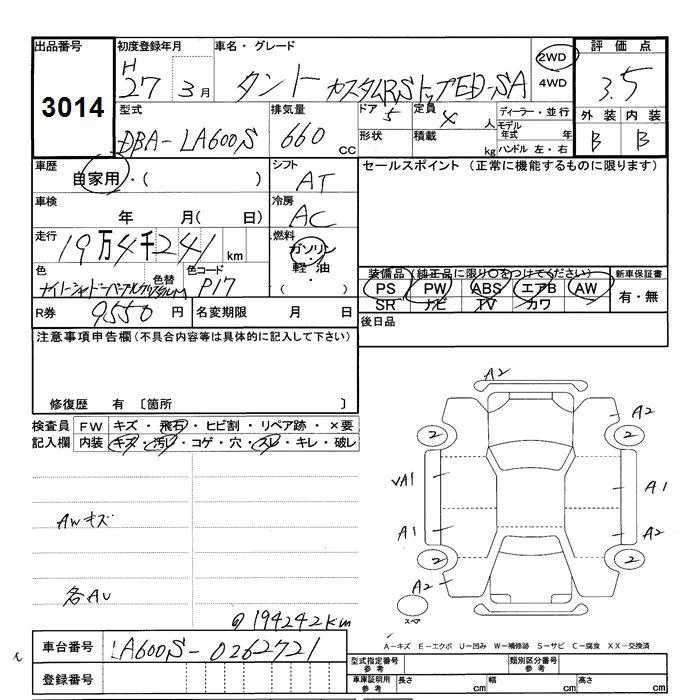 出品番号 初度登録年月 車名・グレード 2WD 評価点
3014 H27年 3月 タント カスタムRSトップED-SA 4WD 3.5
型式 排気量 ドア 5 定員 4人 ディーラー・並行 外装 内装
DBA-LA600S 660cc 形状 積載 kg モデル年式 年 B B
ハンドル 左・右
車歴 自家用・( ) シフト AT セールスポイント (正常に機能するものに限ります)
車検 年 月( 日) 冷房 AC
走行 19万4千241km 燃料 ガソリン・軽油・( )
色 色替 色コード P17 装備品(純正品に限り○をつけてください) 新車保証書
PS PW ABS エアB AW 有・無
SR ナビ TV カワ
R券 9550円 名変期限 月 日 後日品
注意事項申告欄(不具合内容等は具体的に記入して下さい)
修復歴 有 〔箇所 〕
検査員 FW キズ・飛石・ヒビ割・リペア跡・×要
記入欄 内装 キズ・汚レ・コゲ・穴・スレ・キレ・破レ
A2
A2
2 2
VA1 A1
AWキズ
A1 A2
2 2
A2
各AU
@194242km
スペア
A-キズ E-エクボ U-凹み W-補修跡 S-サビ C-腐食 XX-交換済
車台番号 LA600S-0262721
型式指定番号 参考 類別区分番号 参考
登録番号 車庫証明用 参考 長さ cm 幅 cm 高さ cm